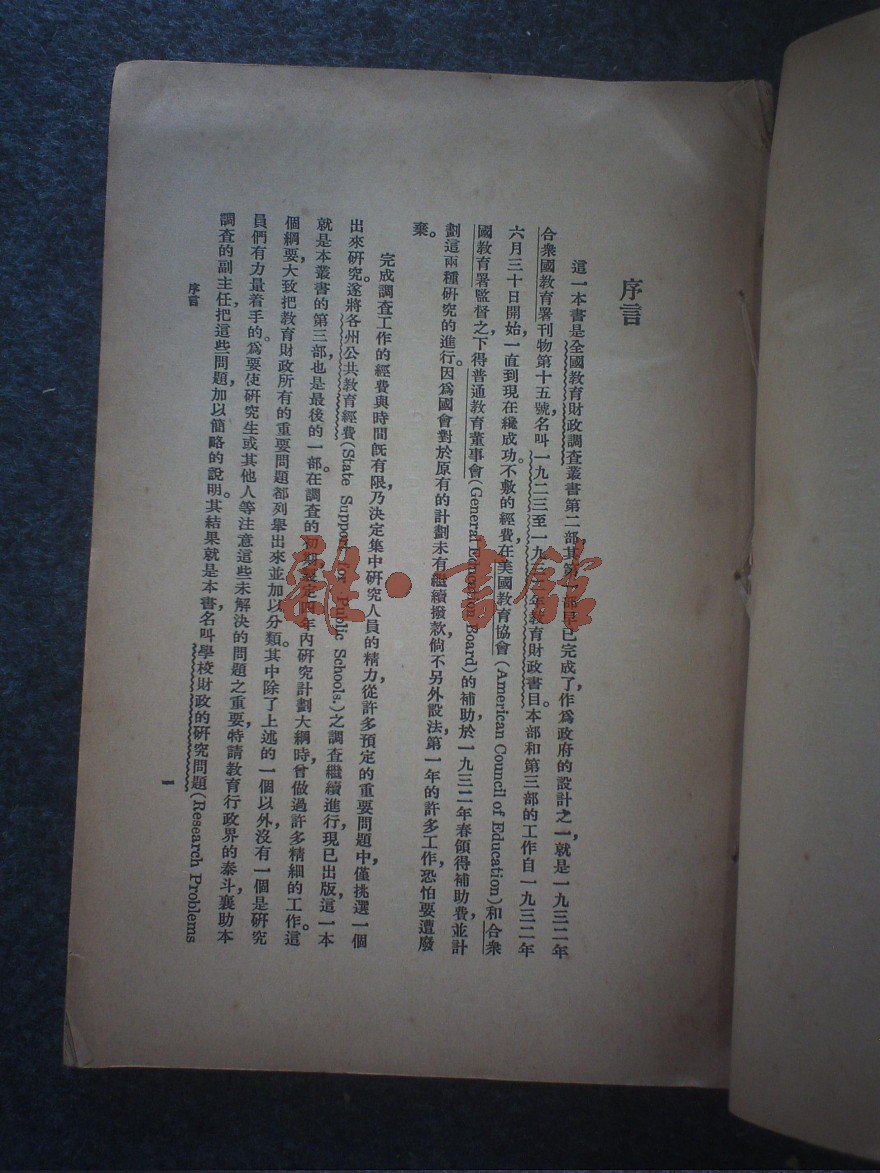 序言
這一本書是全國教育財政調查叢書第二部其第一部早已完成了，作爲政府的設計之一，就是一九三二年
合衆國教育署刊物第十五號，名叫一九二三至一九三二年教育財政書目。本部和第三部的工作自一九三二年
六月三十日開始，一直到現在纔成功。不敷的經費，在美國教育協會（American Council of Education）和合衆
國教育署監督之下，得普通教育董事會（General Education Board）的補助，於一九三二年春領得補助費，並計
劃這兩種研究的進行。因爲國會對於原有的計劃未有繼續撥款，倘不另外設法，第一年的許多工作，恐怕要遭廢
棄。
完成調查工作的經費與時間旣有限，乃決定集中研究人員的精力，從許多預定的重要問題中，僅挑選一個
出來研究。遂將各州公共教育經費（State Support for Public Schools.）之調查繼續進行，現已出版，這一本
就是本叢書的第三部，也是最後的一部。在調查的初期，製定四年內研究計劃大綱時，曾做過許多精細的工作。這
個綱要，大致把教育財政所有的重要問題都列舉出來，並加以分類。其中除了上述的一個以外，沒有一個是研究
員們有力量着手的。爲要使研究生或其他人等注意這些未解決的問題之重要，特請教育行政界的泰斗，襄助本
調查的副主任，把這些問題，加以簡略的說明。其結果就是本書，名叫學校財政的研究問題（Research Problems
序言
一
雜·書館